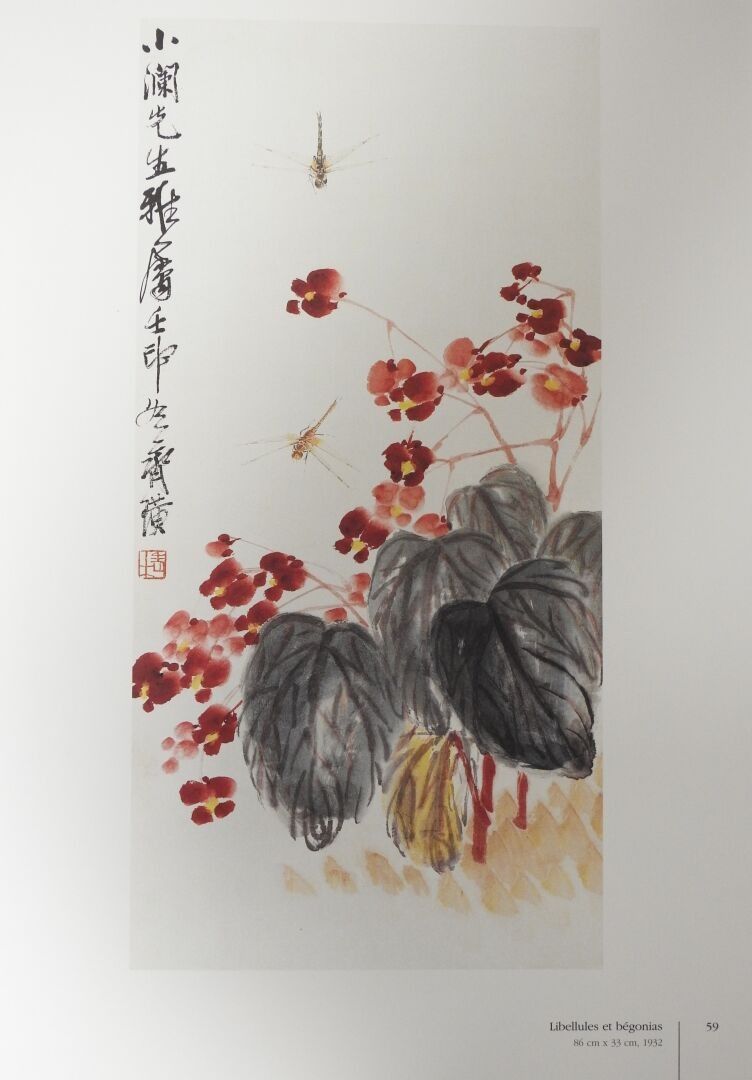 小瀾先生雅屬壬申齊璜
Libellules et bégonias
86 cm x 33 cm, 1932
59